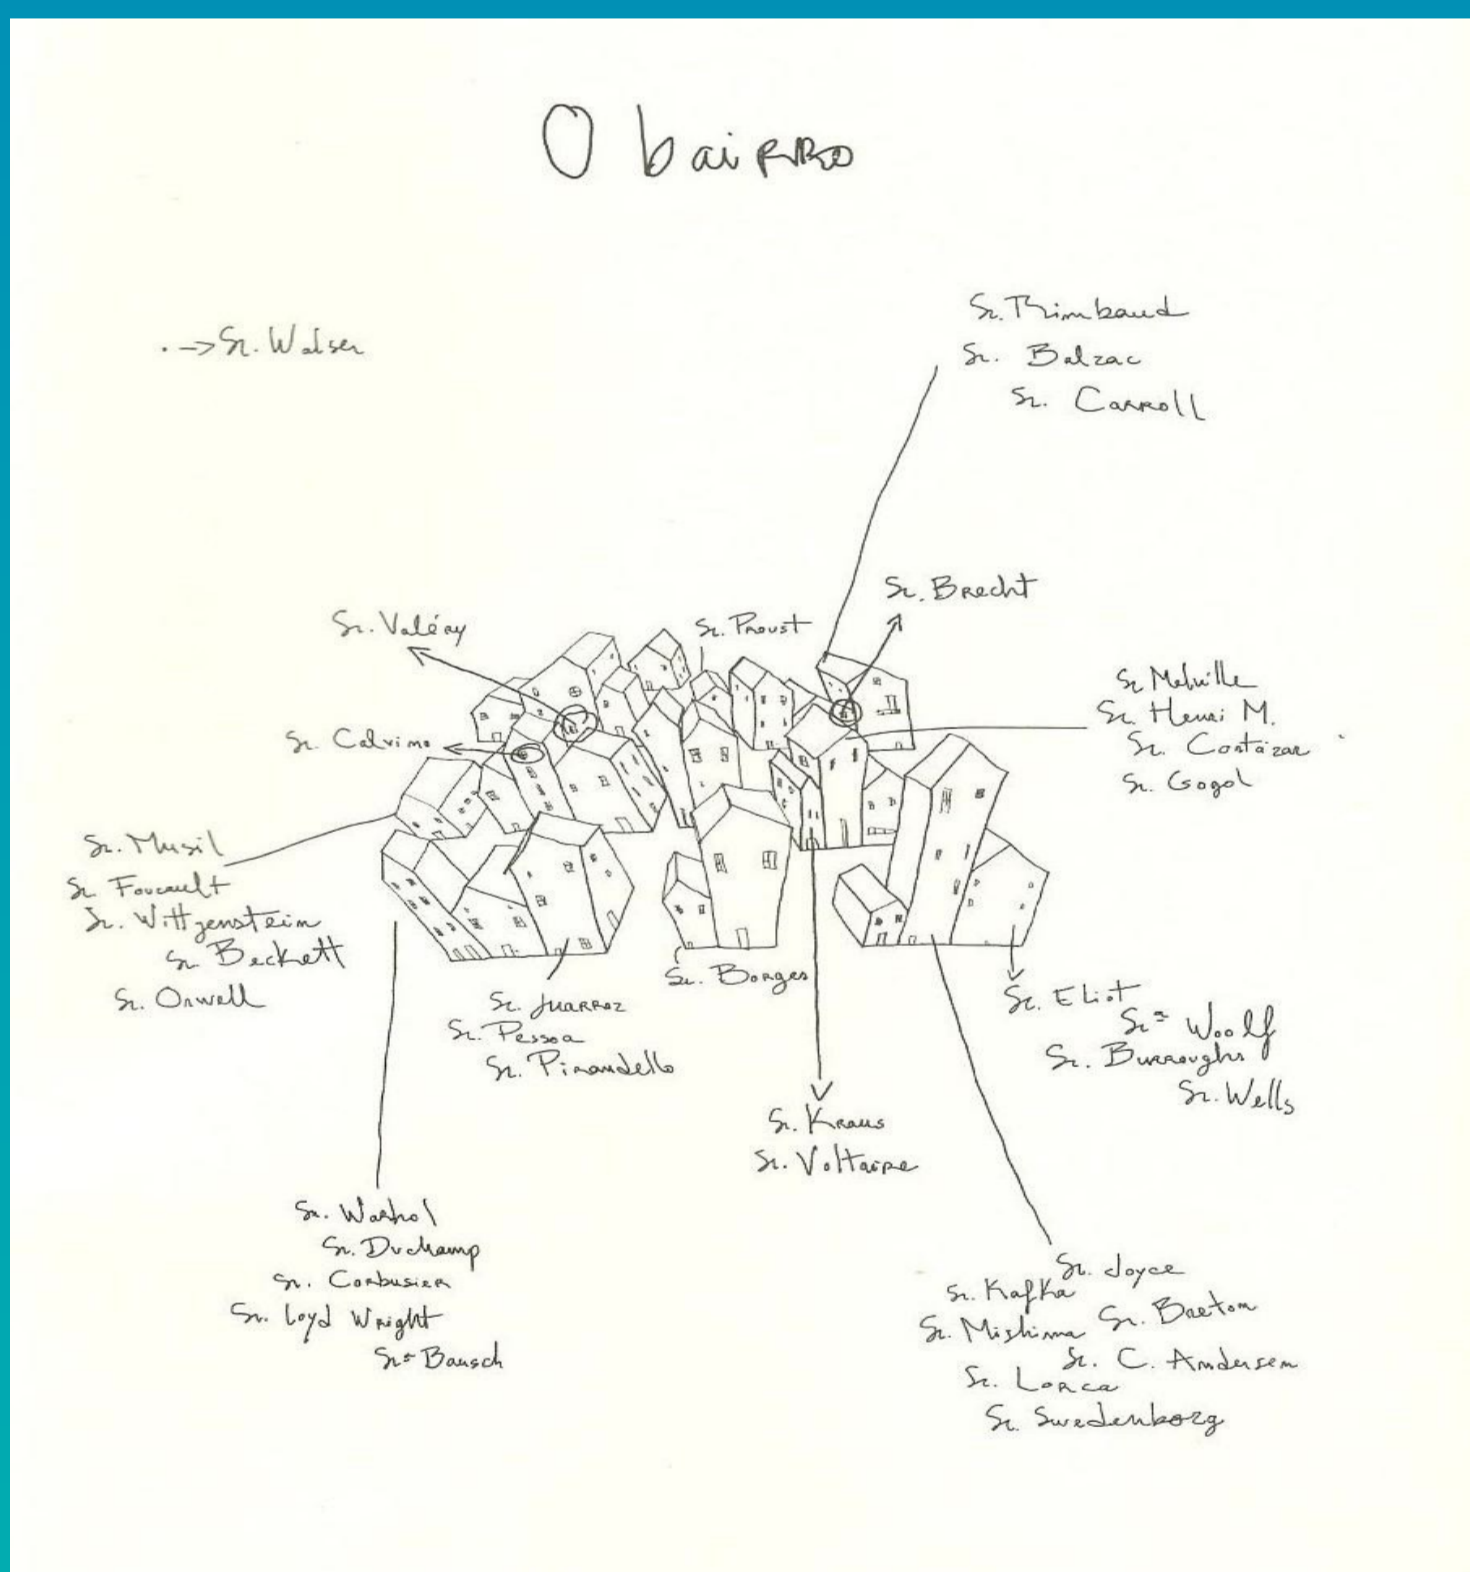 O bairro
Sr. Rimbaud
Sr. Balzac
Sr. Carroll
Sr. Walser
Sr. Brecht
Sr. Valéry
Sr. Proust
Sr. Calvino
Sr Melville
Sr. Henri M.
Sr. Cortázar
Sr. Gogol
Sr. Musil
Sr Foucault
Sr. Wittgenstein
Sr Beckett
Sr. Orwell
Sr. Juarroz
Sr. Pessoa
Sr. Pirandello
Sr. Borges
Sr. Eliot
Srª Woolf
Sr. Burroughs
Sr. Wells
Sr. Kraus
Sr. Voltaire
Sr. Warhol
Sr. Duchamp
Sr. Corbusier
Sr. Loyd Wright
Srª Bausch
Sr. Joyce
Sr. Kafka
Sr. Breton
Sr. Mishima
Sr. C. Andersen
Sr. Lorca
Sr. Swedenborg